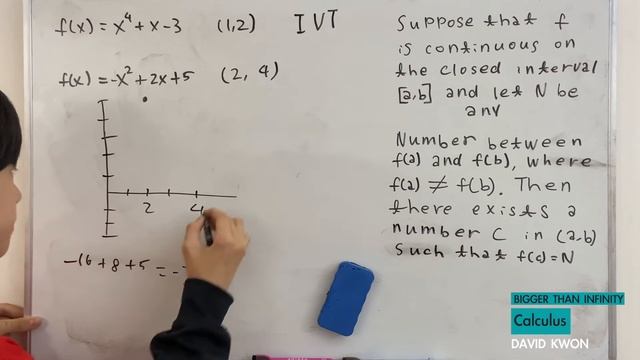 f(x) = x⁴ + x - 3 (1,2) IVT
f(x) = -x² + 2x + 5 (2, 4)
2 4
-16 + 8 + 5 = -
Suppose that f
is continuous on
the closed interval
[a,b] and let N be
any
Number between
f(a) and f(b), where
f(a) ≠ f(b). Then
there exists a
number C in (a,b)
Such that f(c) = N
BIGGER THAN INFINITY
Calculus
DAVID KWON